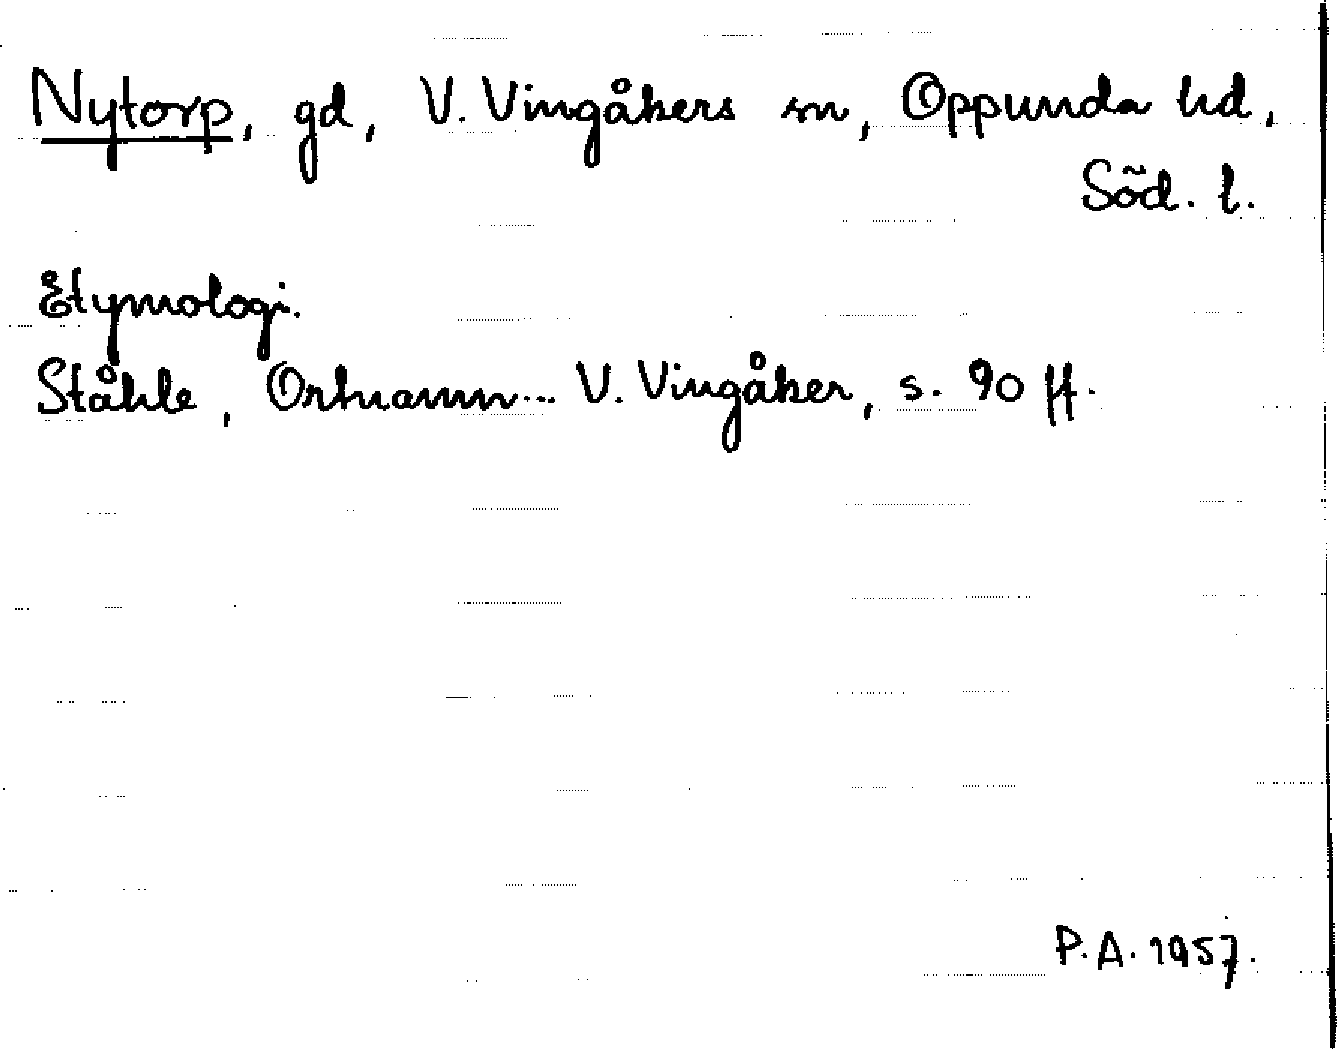 Nytorp, gd, V. Vingåkers sn, Oppunda hd,
Söd. l.
Etymologi.
Ståhle, Ortnamn... V. Vingåker, s. 90 ff.
P.A. 1957.